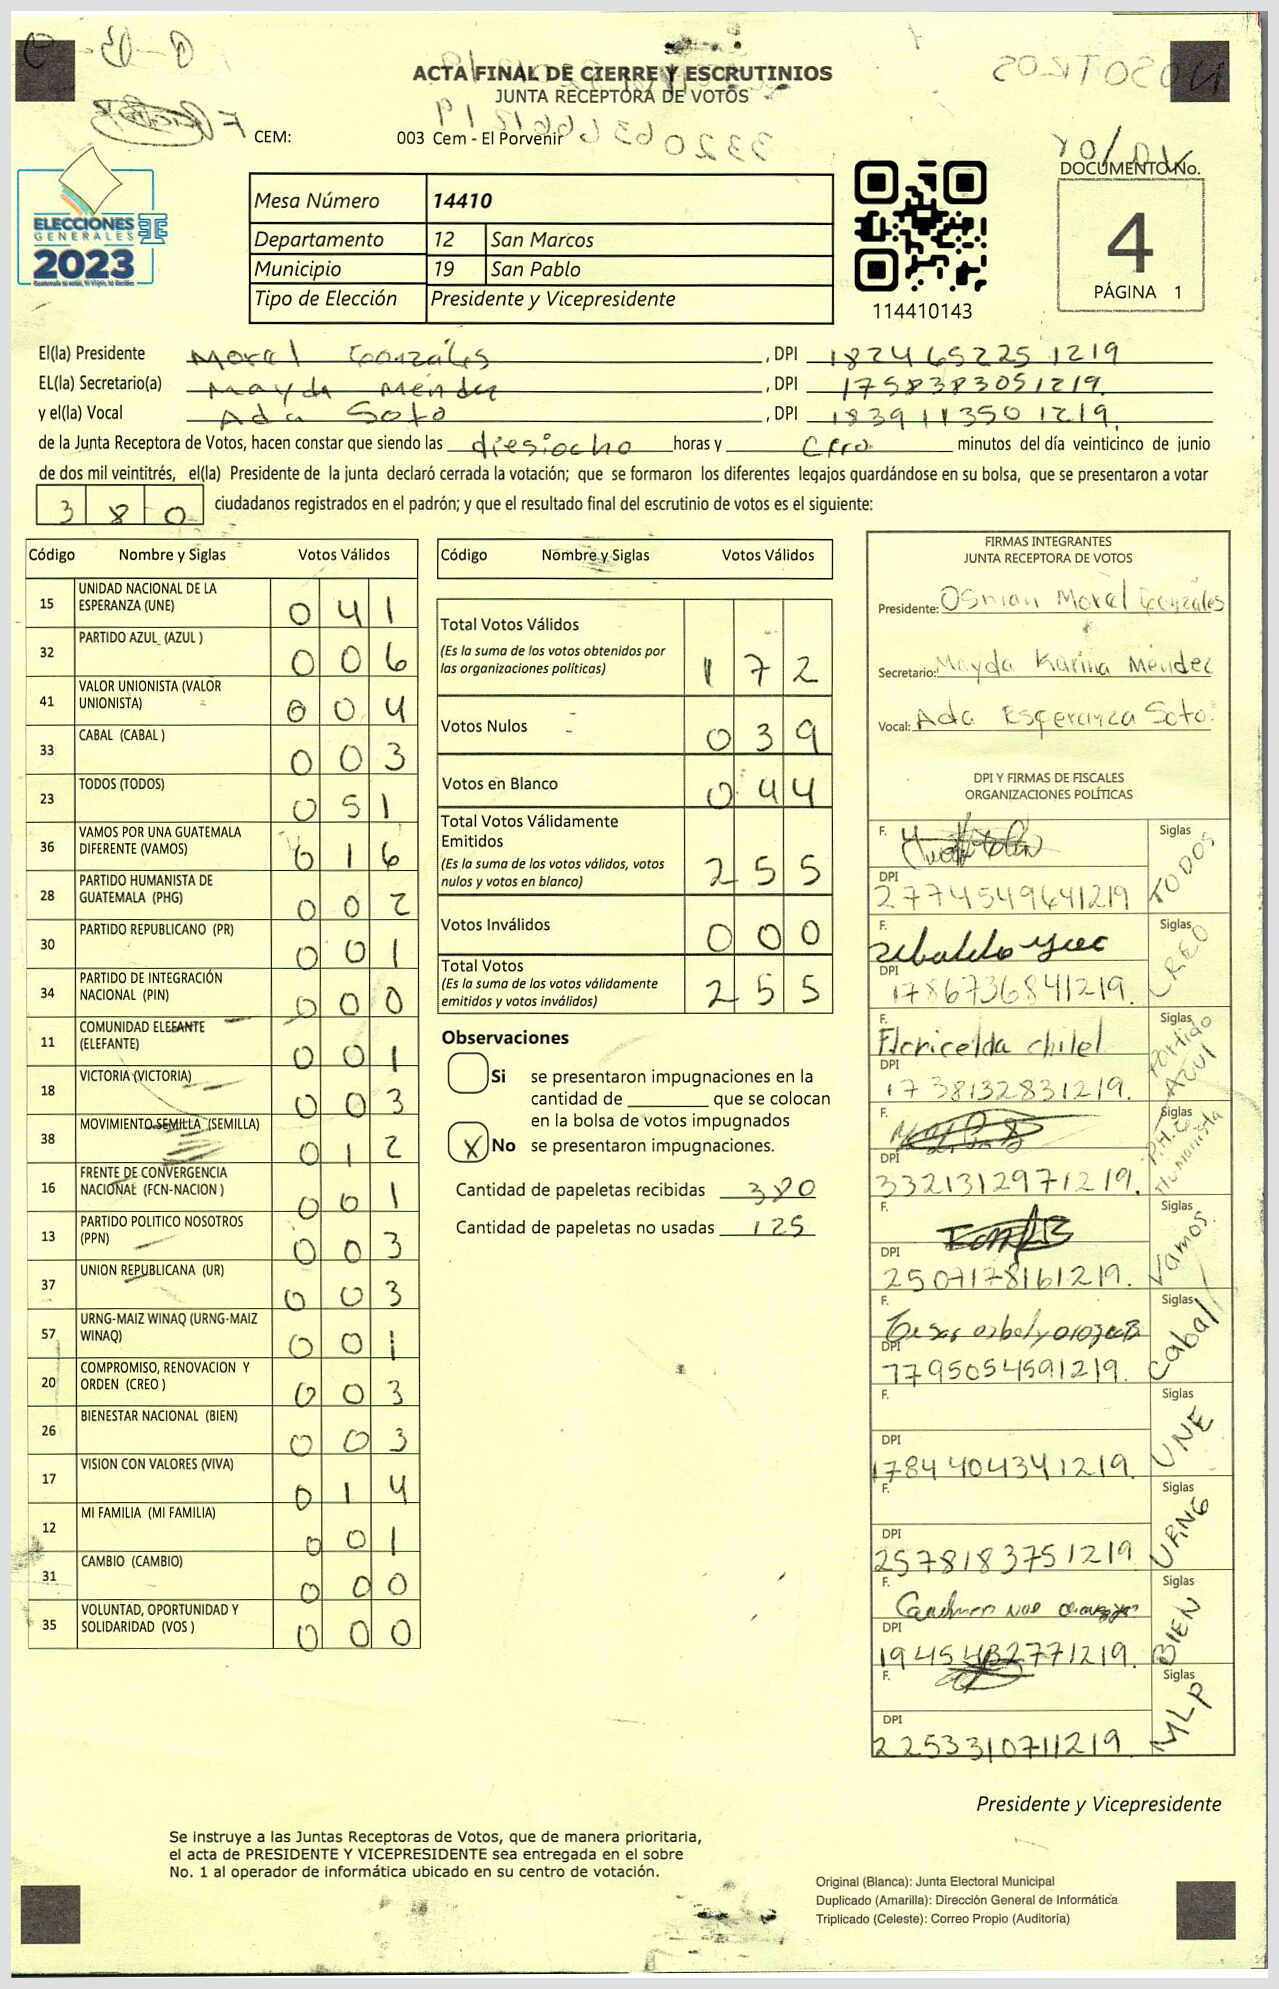 ACTA FINAL DE CIERRE Y ESCRUTINIOS
JUNTA RECEPTORA DE VOTOS
CEM: 003 Cem - El Porvenir
DOCUMENTO No.
4
PÁGINA 1
ELECCIONES
GENERALES
2023
Mesa Número 14410
Departamento 12 San Marcos
Municipio 19 San Pablo
Tipo de Elección Presidente y Vicepresidente
114410143
El(la) Presidente Moral Gonzáles , DPI 1824652251219
EL(la) Secretario(a) Mayda Méndez , DPI 1758383051219.
y el(la) Vocal Ada Soto , DPI 1839113501219.
de la Junta Receptora de Votos, hacen constar que siendo las diesiocho horas y Cero minutos del día veinticinco de junio
de dos mil veintitrés, el(la) Presidente de la junta declaró cerrada la votación; que se formaron los diferentes legajos guardándose en su bolsa, que se presentaron a votar
380 ciudadanos registrados en el padrón; y que el resultado final del escrutinio de votos es el siguiente:
Código Nombre y Siglas Votos Válidos
15 UNIDAD NACIONAL DE LA ESPERANZA (UNE) 041
32 PARTIDO AZUL (AZUL ) 006
41 VALOR UNIONISTA (VALOR UNIONISTA) 004
33 CABAL (CABAL ) 003
23 TODOS (TODOS) 051
36 VAMOS POR UNA GUATEMALA DIFERENTE (VAMOS) 016
28 PARTIDO HUMANISTA DE GUATEMALA (PHG) 002
30 PARTIDO REPUBLICANO (PR) 001
34 PARTIDO DE INTEGRACIÓN NACIONAL (PIN) 000
11 COMUNIDAD ELEFANTE (ELEFANTE) 001
18 VICTORIA (VICTORIA) 003
38 MOVIMIENTO SEMILLA (SEMILLA) 012
16 FRENTE DE CONVERGENCIA NACIONAL (FCN-NACION ) 001
13 PARTIDO POLITICO NOSOTROS (PPN) 003
37 UNION REPUBLICANA (UR) 003
57 URNG-MAIZ WINAQ (URNG-MAIZ WINAQ) 001
20 COMPROMISO, RENOVACION Y ORDEN (CREO ) 003
26 BIENESTAR NACIONAL (BIEN) 003
17 VISION CON VALORES (VIVA) 014
12 MI FAMILIA (MI FAMILIA) 001
31 CAMBIO (CAMBIO) 000
35 VOLUNTAD, OPORTUNIDAD Y SOLIDARIDAD (VOS ) 000
Código Nombre y Siglas Votos Válidos
Total Votos Válidos
(Es la suma de los votos obtenidos por
las organizaciones políticas) 172
Votos Nulos 039
Votos en Blanco 044
Total Votos Válidamente
Emitidos
(Es la suma de los votos válidos, votos
nulos y votos en blanco) 255
Votos Inválidos 000
Total Votos
(Es la suma de los votos válidamente
emitidos y votos inválidos) 255
Observaciones
Si se presentaron impugnaciones en la
cantidad de ________ que se colocan
en la bolsa de votos impugnados
X No se presentaron impugnaciones.
Cantidad de papeletas recibidas 380
Cantidad de papeletas no usadas 125
FIRMAS INTEGRANTES
JUNTA RECEPTORA DE VOTOS
Presidente: Osman Moral Gonzáles
Secretario: Mayda Karina Méndez
Vocal: Ada Esperanza Soto.
DPI Y FIRMAS DE FISCALES
ORGANIZACIONES POLÍTICAS
F. Siglas TODOS
DPI 2774549641219
F. Siglas CREO
DPI 1786736841219.
F. Floricelda chilel Siglas Partido AZUL
DPI 1738132831219.
F. Siglas P.H.G Humanista
DPI 3321312971219.
F. Siglas Vamos
DPI 2507178161219.
F. Siglas Cabal
DPI 7795054591219.
F. Siglas UNE
DPI 1784404341219.
F. Siglas URNG
DPI 2578183751219
F. Siglas BIEN
DPI 1945432771219.
F. Siglas MLP
DPI 2253310711219.
Presidente y Vicepresidente
Se instruye a las Juntas Receptoras de Votos, que de manera prioritaria,
el acta de PRESIDENTE Y VICEPRESIDENTE sea entregada en el sobre
No. 1 al operador de informática ubicado en su centro de votación.
Original (Blanca): Junta Electoral Municipal
Duplicado (Amarilla): Dirección General de Informática
Triplicado (Celeste): Correo Propio (Auditoría)